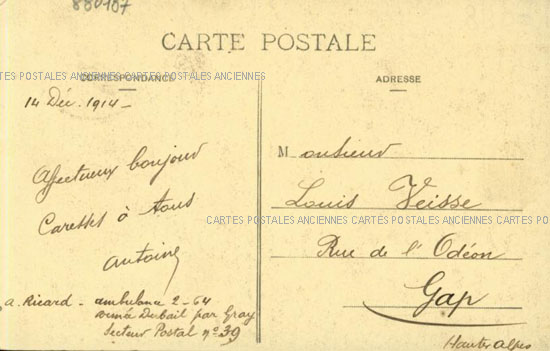 880107
CARTE POSTALE
CARTES POSTALES ANCIENNES CARTES POSTALES ANCIENNES
CORRESPONDANCE
14 Déc. 1914 -
Affectueux bonjour
Caresses à tous
Antoine
a. Ricard - ambulance 2-64
armée Dubail par Gray
Secteur Postal nº 39
ADRESSE
Monsieur
Louis Veisse
CARTES POSTALES ANCIENNES CARTES POSTALES ANCIENNES CARTES PO
Rue de l'Odéon
Gap
Hautes Alpes